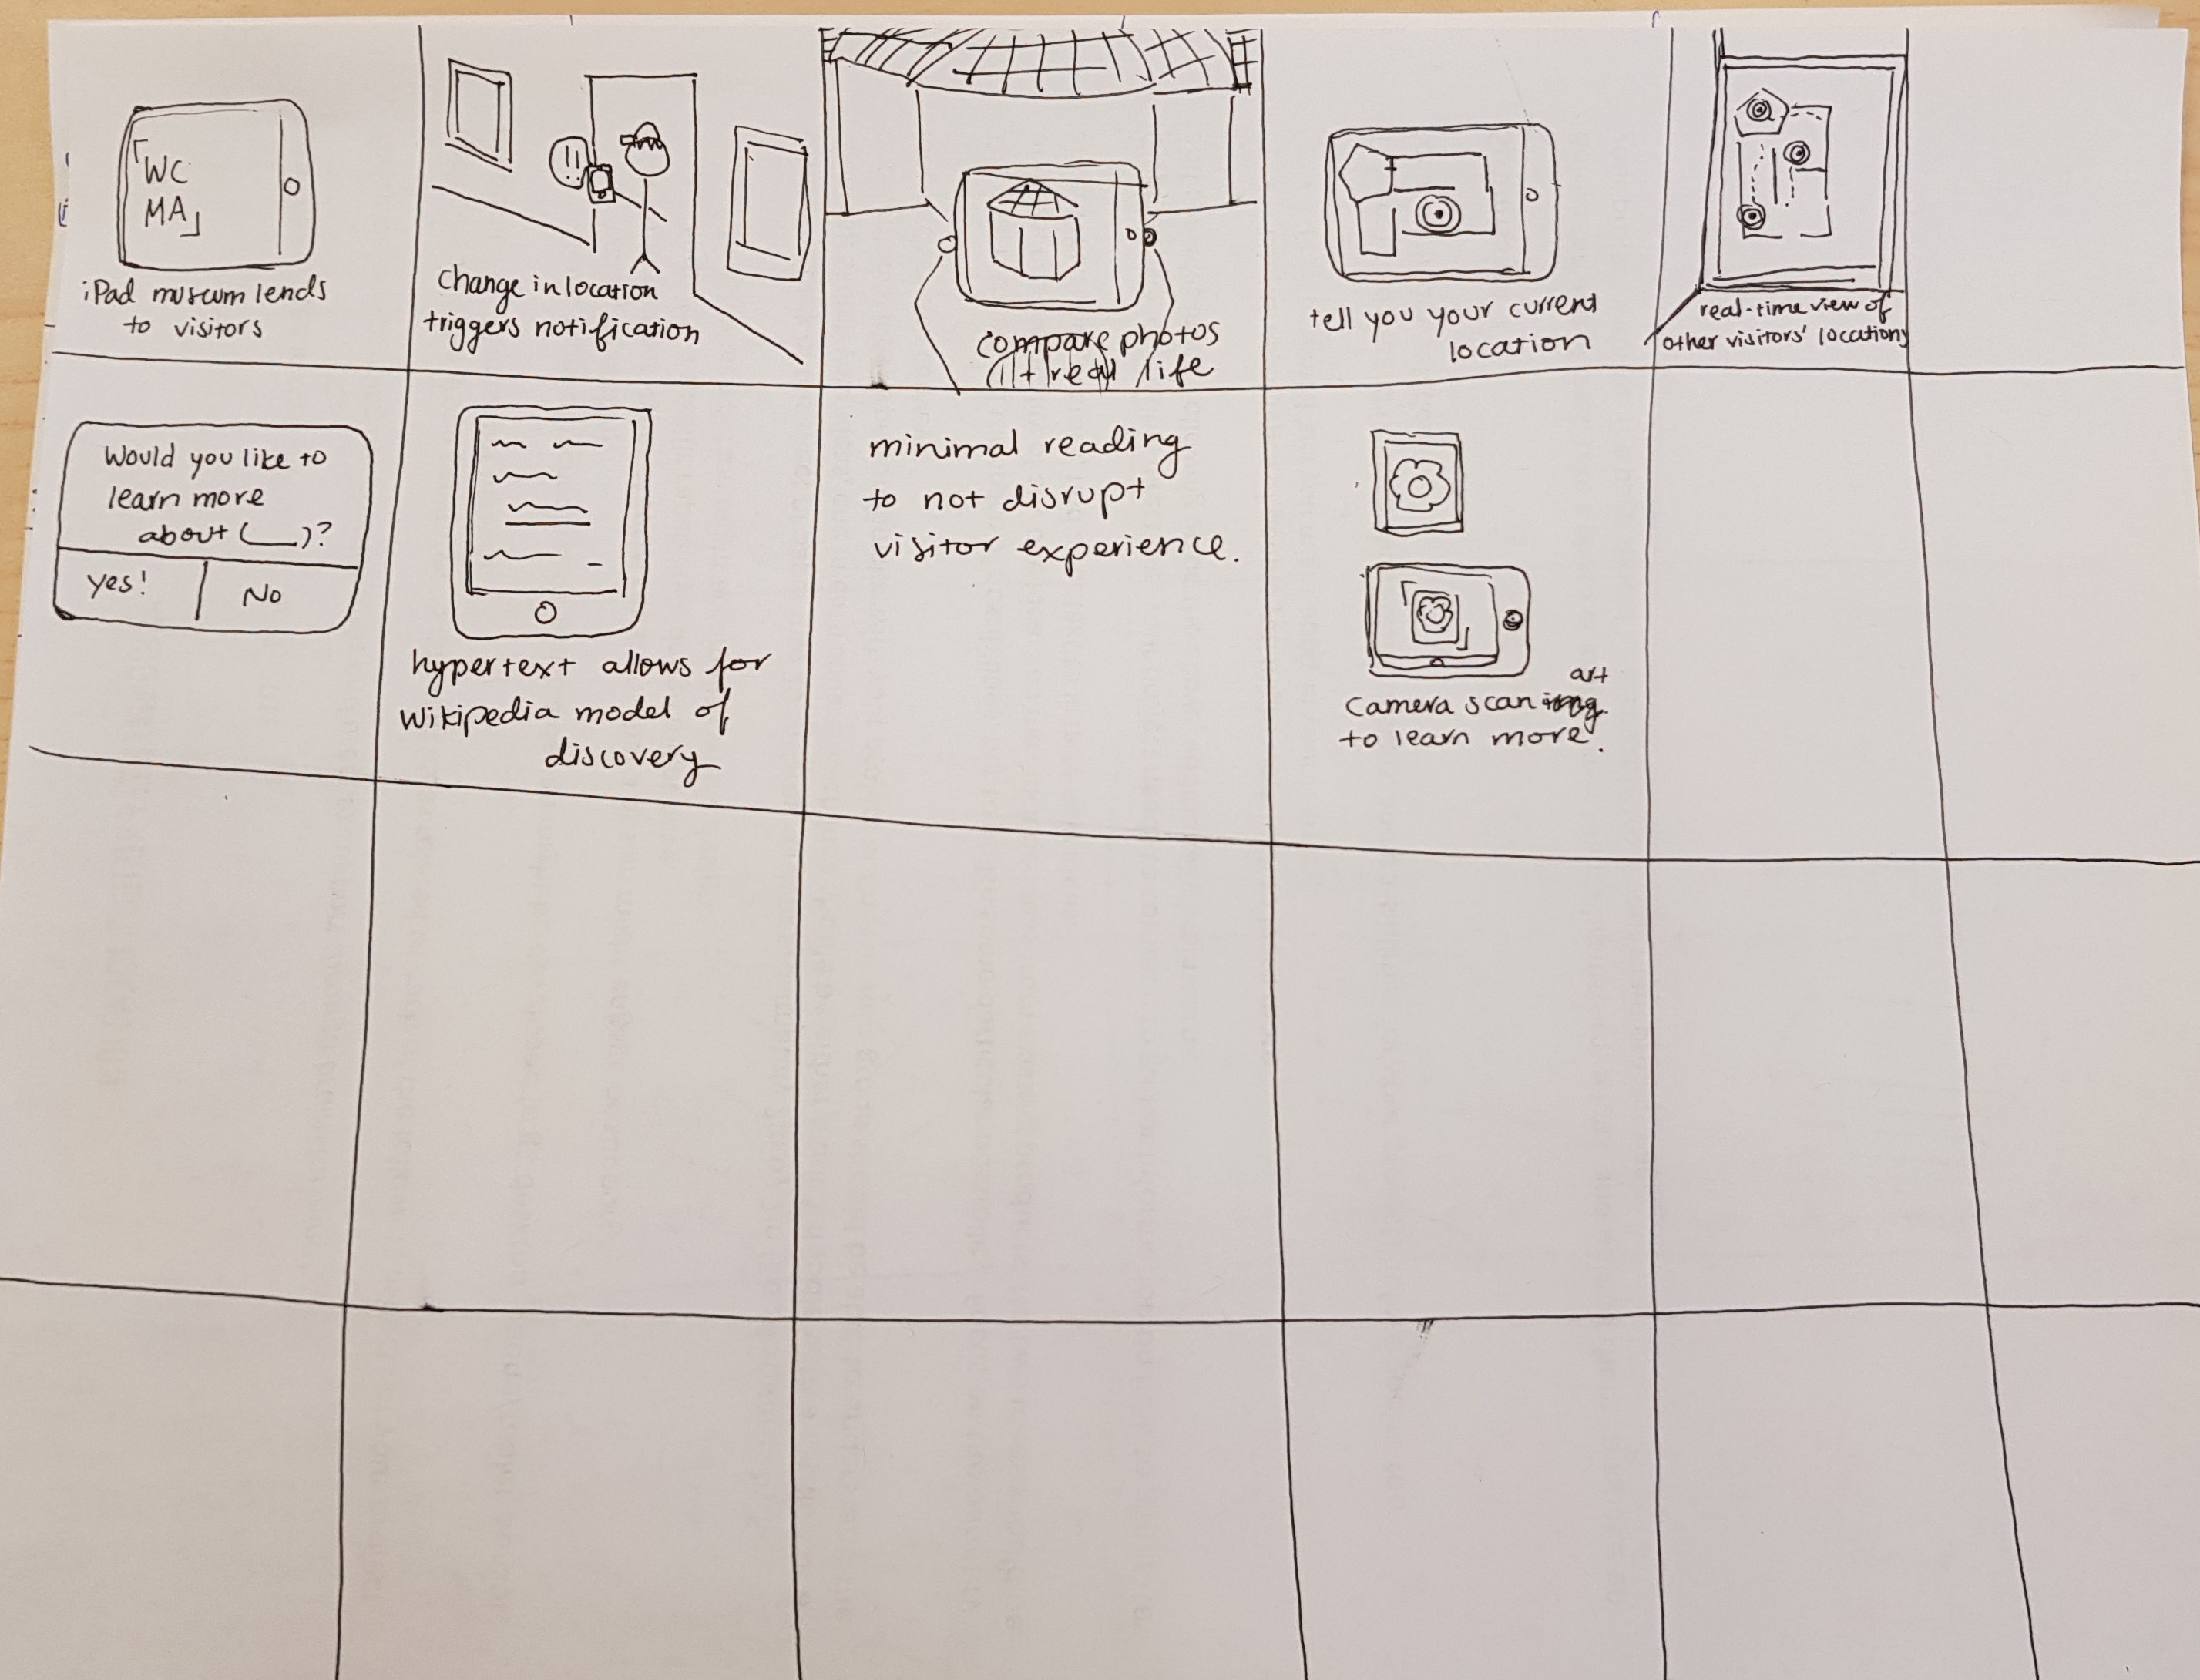 「WC
MA」
iPad museum lends
to visitors
!!
change in location
triggers notification
compare photos
+ real life
tell you your current
location
real-time view of
other visitors' locations
Would you like to
learn more
about (__)?
yes!
No
hypertext allows for
Wikipedia model of
discovery
minimal reading
to not disrupt
visitor experience.
art
camera scan
to learn more.